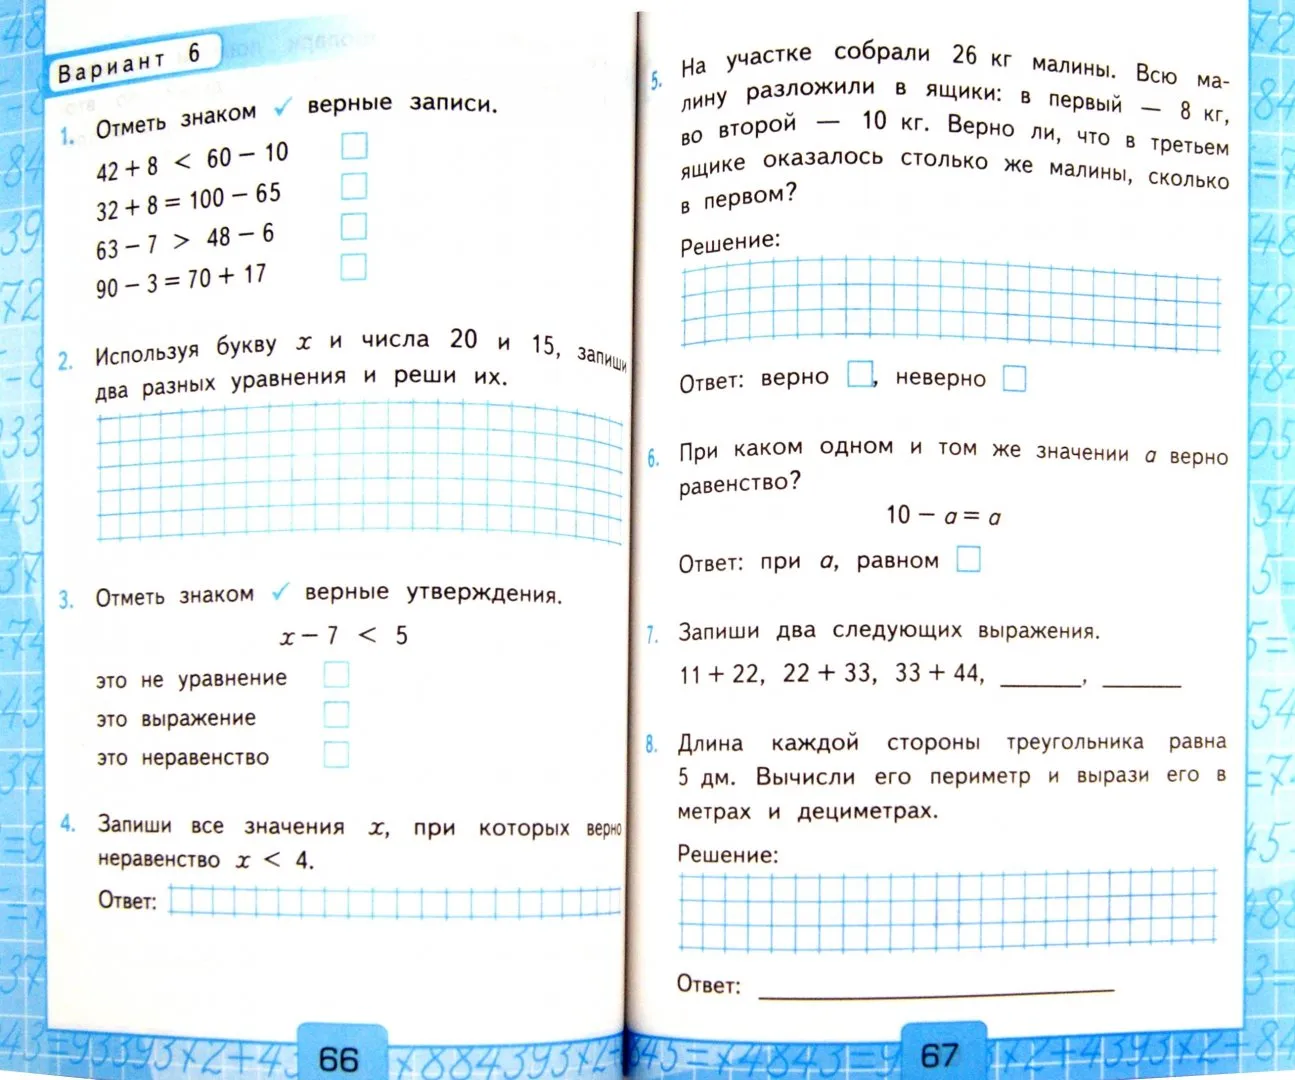 Вариант 6
1. Отметь знаком ✓ верные записи.
42 + 8 < 60 − 10
32 + 8 = 100 − 65
63 − 7 > 48 − 6
90 − 3 = 70 + 17
2. Используя букву x и числа 20 и 15, запиши
два разных уравнения и реши их.
3. Отметь знаком ✓ верные утверждения.
x − 7 < 5
это не уравнение
это выражение
это неравенство
4. Запиши все значения x, при которых верно
неравенство x < 4.
Ответ:
66
5. На участке собрали 26 кг малины. Всю ма-
лину разложили в ящики: в первый — 8 кг,
во второй — 10 кг. Верно ли, что в третьем
ящике оказалось столько же малины, сколько
в первом?
Решение:
Ответ: верно , неверно
6. При каком одном и том же значении a верно
равенство?
10 − a = a
Ответ: при a, равном
7. Запиши два следующих выражения.
11 + 22, 22 + 33, 33 + 44, ______, ______
8. Длина каждой стороны треугольника равна
5 дм. Вычисли его периметр и вырази его в
метрах и дециметрах.
Решение:
Ответ: ______
67